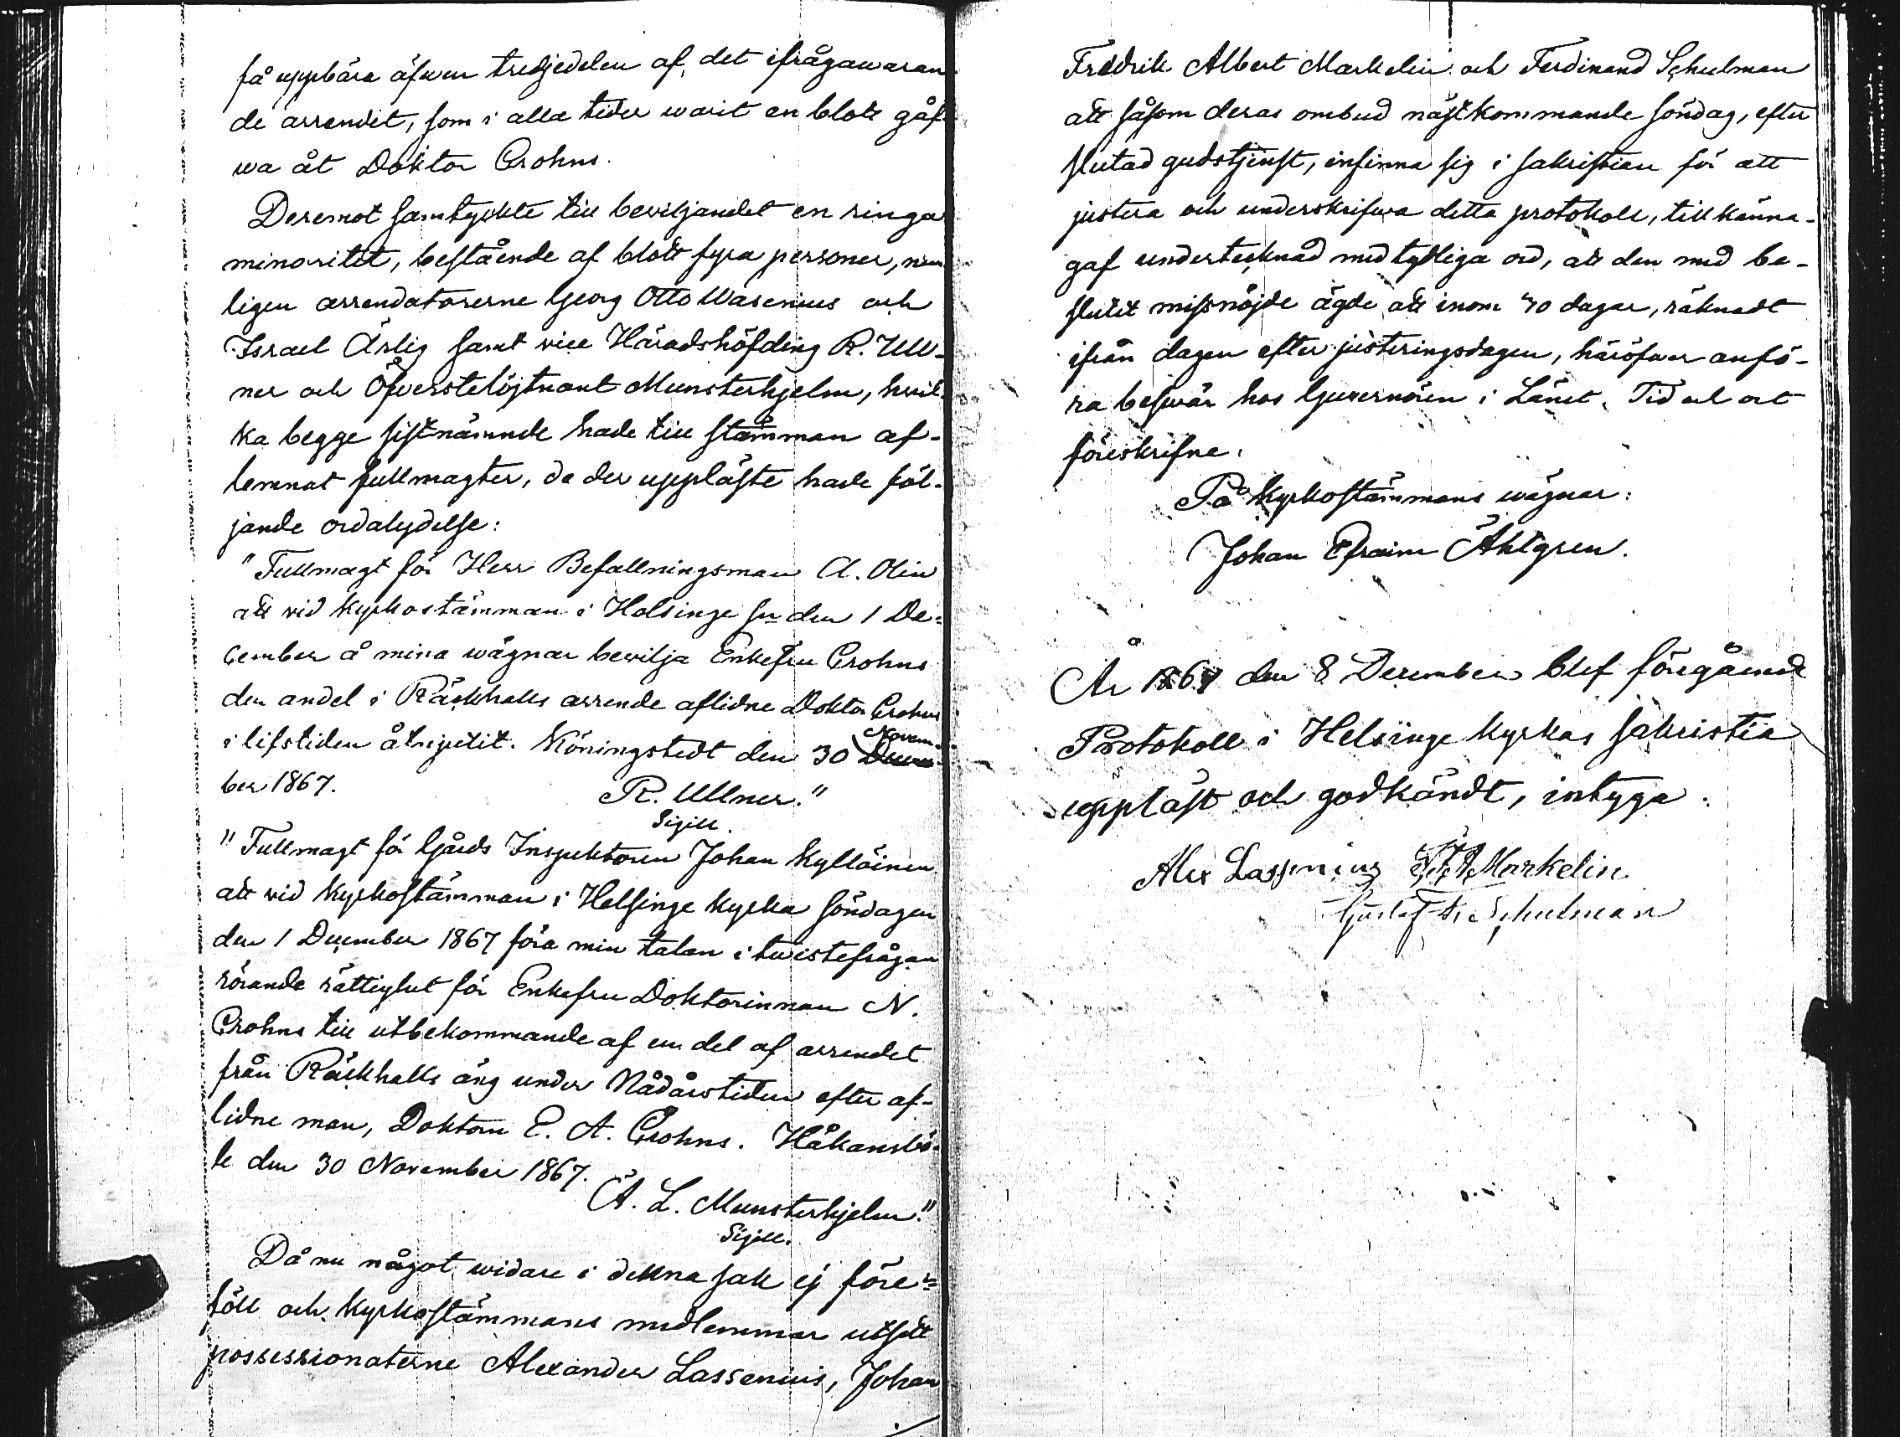 få uppbära äfwen tredjedelen af det ifrågawaran
de arrendet, som i alla tider warit en blott gåf
wa åt Doktor Crohns.
Deremot samtyckte till beviljandet en ringa
minoritet, bestående af blott fyra personer, nem
ligen arrendatorerne Georg Otto Wasenius och
Israel Ärlig samt vice Häradshöfding R. Ull-
ner och Öfverstelöjtnant Munsterhjelm, hvil-
ka begge sistnämnde hade till stämman af-
lemnat fullmagter, de der uppläste hade föl-
jande ordalydelse:
"Fullmagt för Herr Befallningsman A. Olin
att vid kyrkostämman i Helsinge sn den 1 De-
cember å mina wägnar bevilja Enkefru Crohns
den andel i Räckhalls arrende aflidne Doktor Crohns
i lifstiden åtnjutit. Köningstedt den 30 Novem-
ber 1867. R. Ullner."
Sigill.
"Fullmagt för Gårds Inspektoren Johan Kylläinen
att vid kyrkostämman i Helsinge kyrka söndagen
den 1 December 1867 föra min talan i twistefrågan
rörande rättighet för Enkefru Doktorinnan N.
Crohns till utbekommande af en del af arrendet
från Räckhalls äng under Nådårstiden efter af-
lidne man, Doktorn E. A. Crohns. Håkansbö-
le den 30 November 1867.
A. L. Munsterhjelm."
Sigill.
Då nu något widare i denna sak ej före-
föll och kyrkostämmans medlemmar utsett
possessionaterne Alexander Lassenius, Johan
Fredrik Albert Markelin och Ferdinand Schulman
att såsom deras ombud nästkommande söndag, efter
slutad gudstjenst, infinna sig i sakristian för att
justera och underskrifwa detta protokoll, tillkänna-
gaf undertecknad med tydliga ord, att den med be-
slutet missnöjde ägde att inom 30 dagar, räknadt
ifrån dagen efter justeringsdagen, häröfwer anfö-
ra beswär hos Guvernören i Länet. Tid och ort
föreskrifne.
På kyrkostämmans wägnar:
Johan Efraim Åhlgren.
År 1867 den 8 December blef föregående
Protokoll i Helsinge kyrkas sakristia
uppläst och godkändt, intyga:
Alex Lassenius F. A Markelin
Gustaf F. Schulman